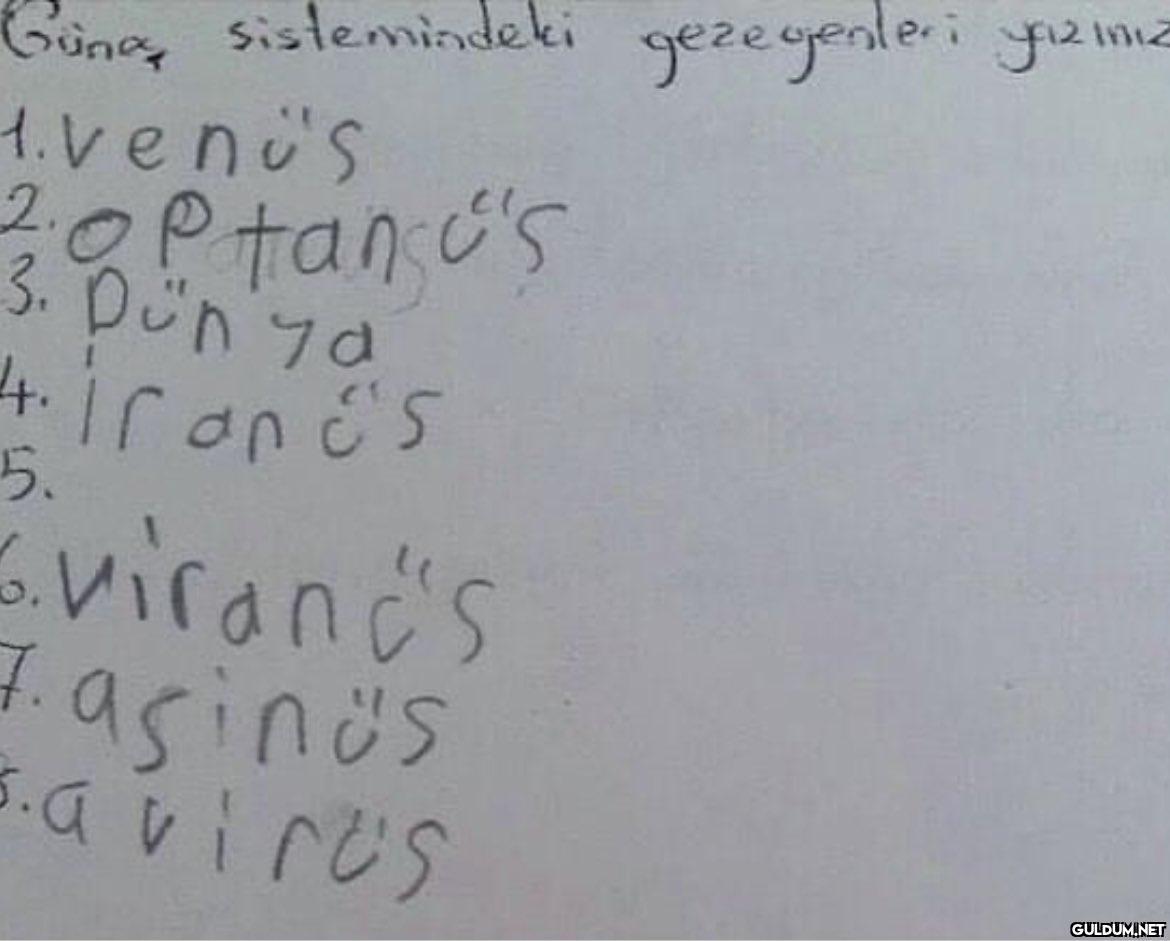 Güneş sistemindeki gezegenleri yazınız
1. venüs
2. optanüs
3. Dünya
4. iranüs
5.
6. viranüs
7. asinüs
8. avirüs
GULDUM.NET